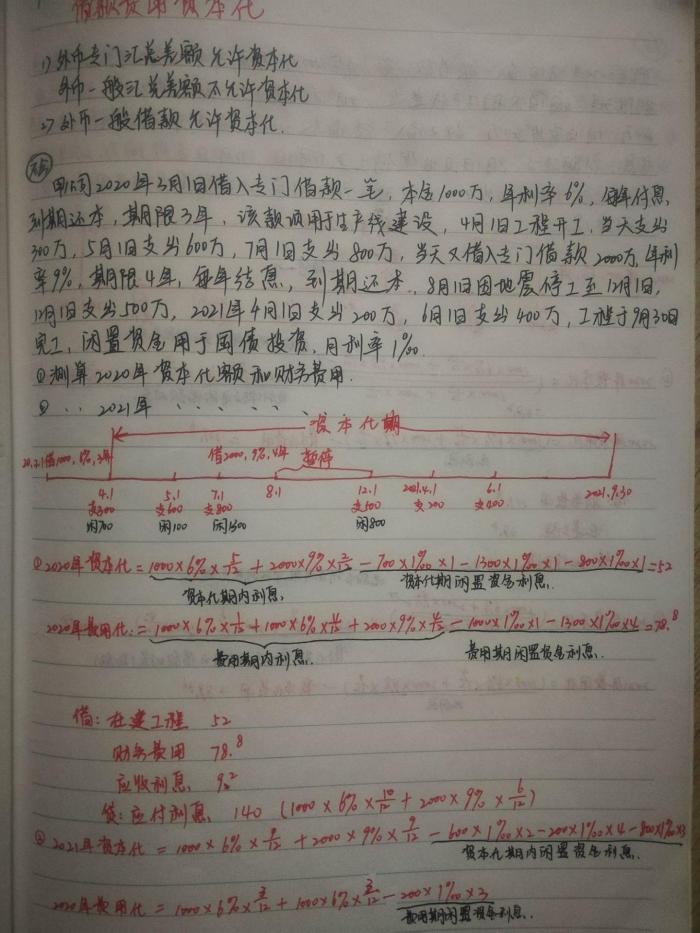 借款费用资本化
1) 外币专门汇兑差额允许资本化
外币一般汇兑差额不允许资本化
2) 外币一般借款允许资本化.
甲公司2020年3月1日借入专门借款一笔, 本金1000万, 年利率6%, 每年付息,
到期还本, 期限3年, 该款项用于生产线建设, 4月1日工程开工, 当天支出
300万, 5月1日支出600万, 7月1日支出800万, 当天又借入专门借款2000万, 年利
率9%, 期限4年, 每年结息, 到期还本, 8月1日因地震停工至12月1日,
12月1日支出500万, 2021年4月1日支出200万, 6月1日支出400万, 工程于9月30日
完工, 闲置资金用于国债投资, 月利率1‰.
① 测算2020年资本化额和财务费用.
② ‥ 2021年 ‥‥‥
资本化期
20.3.1借1000, 6%, 3年 借2000, 9%, 4年 暂停
4.1 5.1 7.1 8.1 12.1 2021.4.1 6.1 2021.9.30
支300 支600 支800 支500 支200 支400
闲700 闲100 闲1300 闲800
① 2020年资本化 = 1000×6%×5/12 + 2000×9%×2/12 - 700×1‰×1 - 1300×1‰×1 - 800×1‰×1 = 52
资本化期内利息. 资本化期闲置资金利息.
2020年费用化: = 1000×6%×1/12 + 1000×6%×4/12 + 2000×9%×4/12 - 1000×1‰×1 - 1300×1‰×4 = 78.8
费用期内利息. 费用期闲置资金利息.
借: 在建工程 52
财务费用 78.8
应收利息 9.2
贷: 应付利息 140 (1000×6%×10/12 + 2000×9%×6/12)
② 2021年资本化 = 1000×6%×9/12 + 2000×9%×9/12 - 600×1‰×2 - 200×1‰×4 - 800×1‰×3
资本化期内闲置资金利息.
2020年费用化 = 1000×6%×3/12 + 1000×6%×3/12 - 200×1‰×3
费用期闲置资金利息.